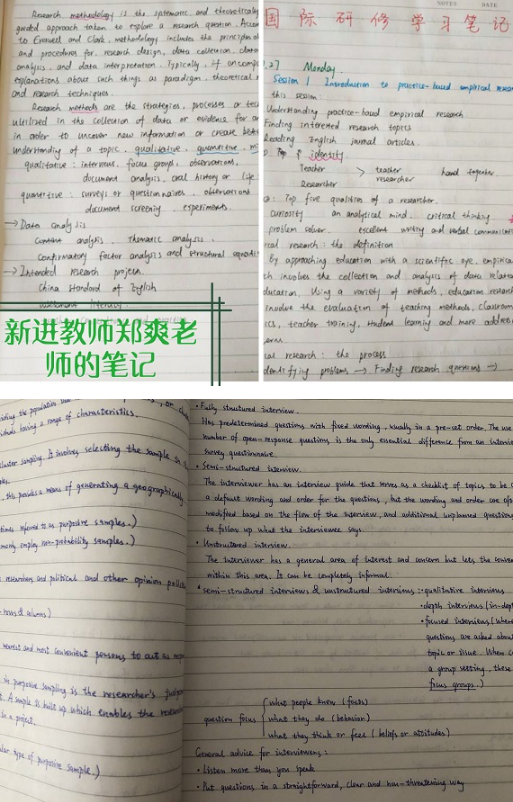 Research methodology is the systematic and theoretically
guided approach taken to explore a research question.
to Everwell and Clark, methodology includes the principles of
and procedures for, research design, data collection, data
analysis, and data interpretation. Typically, it
explanations about such things as paradigm, theoretical
and research techniques.
Research methods are the strategies, processes or
utilized in the collection of data or evidence for
in order to uncover new information or create
understanding of a topic. qualitative, quantitive,
qualitative: interviews, focus groups, observations,
document analysis, oral history or life
quantitive: surveys or questionnaires, observations
document screening, experiments.
→ Data analysis
Content analysis, Thematic analysis,
Confirmatory factor analysis and structural
→ Intended research project.
China Standard of English
assessment literacy
新进教师郑爽老
师的笔记
NOTES DATE
国际研修学习笔记
Monday
Session 1 Introduction to practice-based empirical
this session
Understanding practice-based empirical research
Finding interested research topics
Reading English journal articles.
identity
Teacher > teacher hand together
Researcher researcher
Top five qualities of a researcher.
curiosity an analytical mind, critical thinking
problem solver, excellent writing and verbal
research: the definition
By approaching education with a scientific eye,
involves the collection and analysis of data
Using a variety of methods, education research
involve the evaluation of teaching methods, classroom
teacher training, student learning and more
research: the process
identifying problems → Finding research questions →
the population
having a range of characteristics.
cluster sampling. It involves selecting the sample in
this provides a means of generating a geographically
referred to as purposive samples.)
employ non-probability samples.)
researchers and political and other opinion
& columns)
nearest and most convenient persons to act as
in purposive sampling is the researcher's
A sample is built up which enables the
in a project.
type of purposive sample.)
• Fully structured interview.
Has predetermined questions with fixed wording, usually in a pre-set order. The use
number of open-response questions is the only essential difference from an interview
survey questionnaire.
• Semi-structured interview.
The interviewer has an interview guide that serves as a checklist of topics to be
a default wording and order for the questions, but the wording and order are
modified based on the flow of the interview, and additional unplanned questions
to follow up what the interviewee says.
• Unstructured interview.
The interviewer has a general area of interest and concern but lets the
within this area. It can be completely informal.
* semi-structured interviews & unstructured interviews: • qualitative interviews
• depth interviews
• focused interviews
questions are asked about
topic or issue. When
a group setting, these
focus groups.)
what people know (facts)
question focus what they do (behavior)
what they think or feel (beliefs or attitudes)
General advice for interviewers:
• Listen more than you speak
• Put questions in a straightforward, clear and non-threatening way